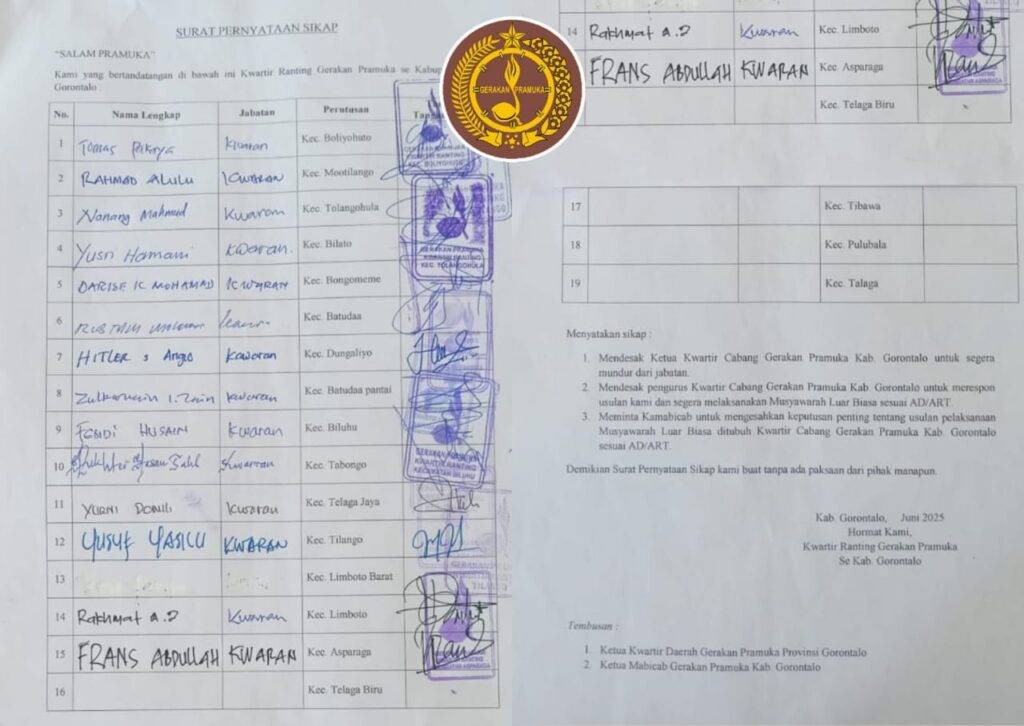 SURAT PERNYATAAN SIKAP
"SALAM PRAMUKA"
Kami yang bertandatangan di bawah ini Kwartir Ranting Gerakan Pramuka se Kabup
Gorontalo :
No. Nama Lengkap Jabatan Perutusan
1 Kwaran Kec. Boliyohuto
2 RAHMAD ALULU KWARAN Kec. Mootilango
3 Nanang Mahmud Kwaran Kec. Tolangohula
4 Yusri Hamani Kwaran. Kec. Bilato
5 DARISE K MOHAMAD KWARAN Kec. Bongomeme
6 Kec. Batudaa
7 HITLER S Kwaran Kec. Dungaliyo
8 Zulkarnain Kwaran Kec. Batudaa pantai
9 HUSAIN Kwaran Kec. Biluhu
10 Kwarran Kec. Tabongo
11 YURNI DONILI Kwaran Kec. Telaga Jaya
12 YUSUF YASICU KWARAN Kec. Tilango
13 Kec. Limboto Barat
14 Rakhmat a.D Kwaran Kec. Limboto
15 FRANS ABDULLAH KWARAN Kec. Asparaga
16 Kec. Telaga Biru
GERAKAN PRAMUKA
14 Rakhmat a.D Kwaran Kec. Limboto
FRANS ABDULLAH KWARAN Kec. Asparaga
Kec. Telaga Biru
17 Kec. Tibawa
18 Kec. Pulubala
19 Kec. Talaga
Menyatakan sikap :
1. Mendesak Ketua Kwartir Cabang Gerakan Pramuka Kab. Gorontalo untuk segera
mundur dari jabatan.
2. Mendesak pengurus Kwartir Cabang Gerakan Pramuka Kab. Gorontalo untuk merespon
usulan kami dan segera melaksanakan Musyawarah Luar Biasa sesuai AD/ART.
3. Meminta Kamabicab untuk mengesahkan keputusan penting tentang usulan pelaksanaan
Musyawarah Luar Biasa ditubuh Kwartir Cabang Gerakan Pramuka Kab. Gorontalo
sesuai AD/ART.
Demikian Surat Pernyataan Sikap kami buat tanpa ada paksaan dari pihak manapun.
Kab. Gorontalo, Juni 2025
Hormat Kami,
Kwartir Ranting Gerakan Pramuka
Se Kab. Gorontalo
Tembusan :
1. Ketua Kwartir Daerah Gerakan Pramuka Provinsi Gorontalo
2. Ketua Mabicab Gerakan Pramuka Kab. Gorontalo